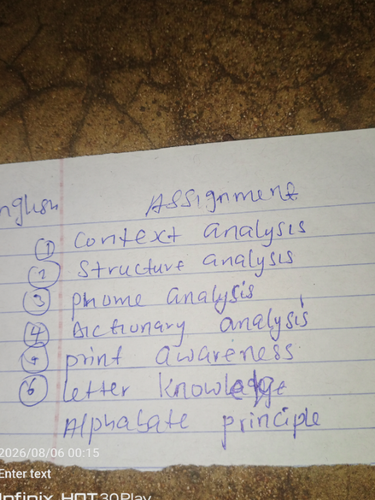 nglish Assignment
① Context analysis
② Structure analysis
③ phome analysis
④ Dictionary analysis
⑤ print awareness
⑥ letter knowledge
Alphabate principle
2026/08/06 00:15
Enter text
Infinix HOT 30Play